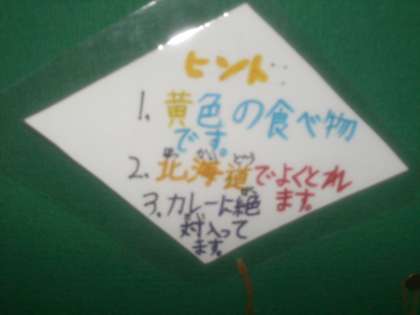 ヒント:
1. 黄色の食べ物
です。
ほっ かい どう
2. 北海道でよくとれ
ます。
3. カレーに絶
対入って
ます。